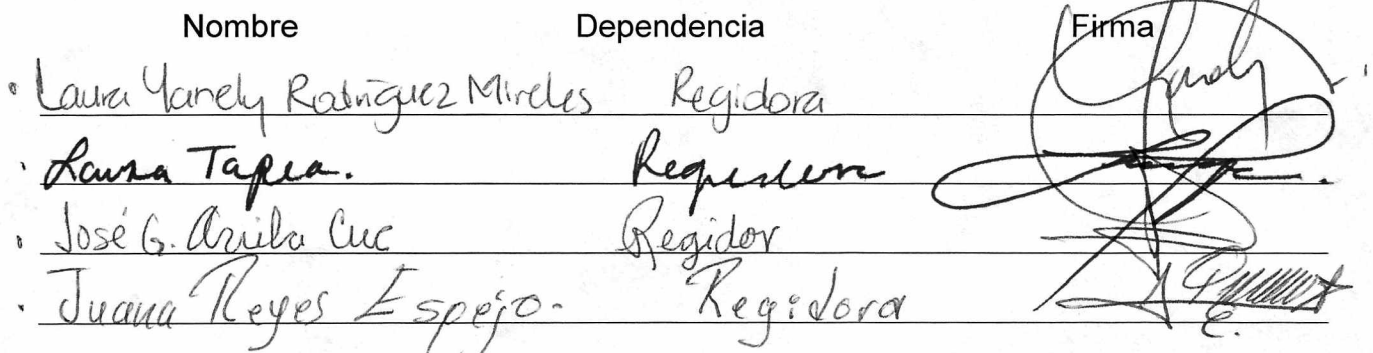 Nombre Dependencia Firma
Laura Yanely Rodríguez Mireles Regidora
Laura Tapia. Regidora
José G. Cuc Regidor
Juana Reyes Espejo. Regidora